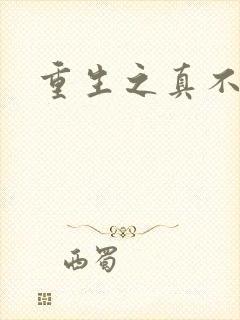 重生之真不
西蜀